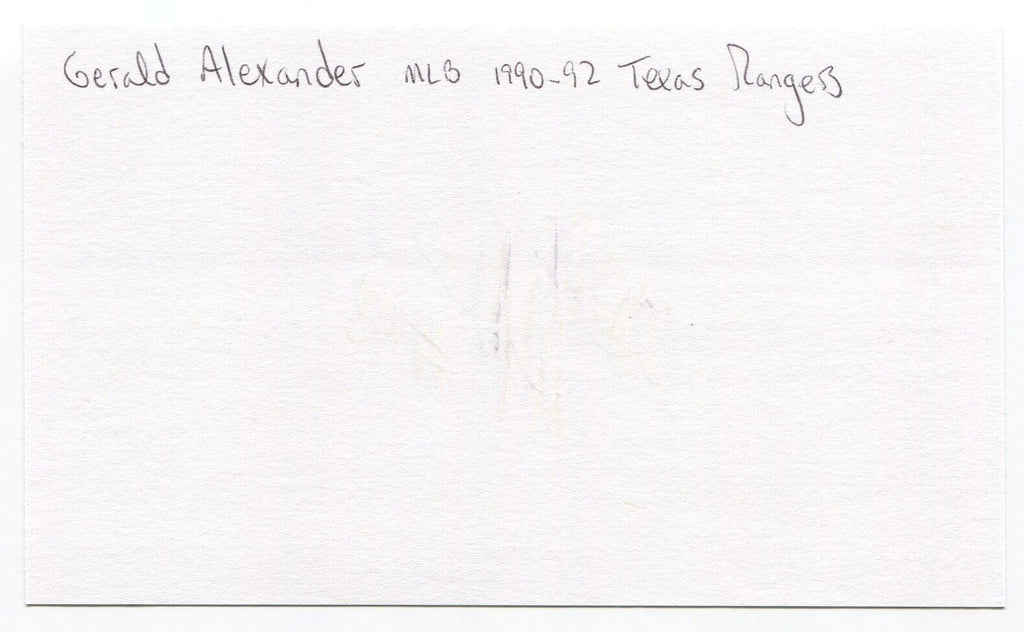 Gerald Alexander MLB 1990-92 Texas Rangers